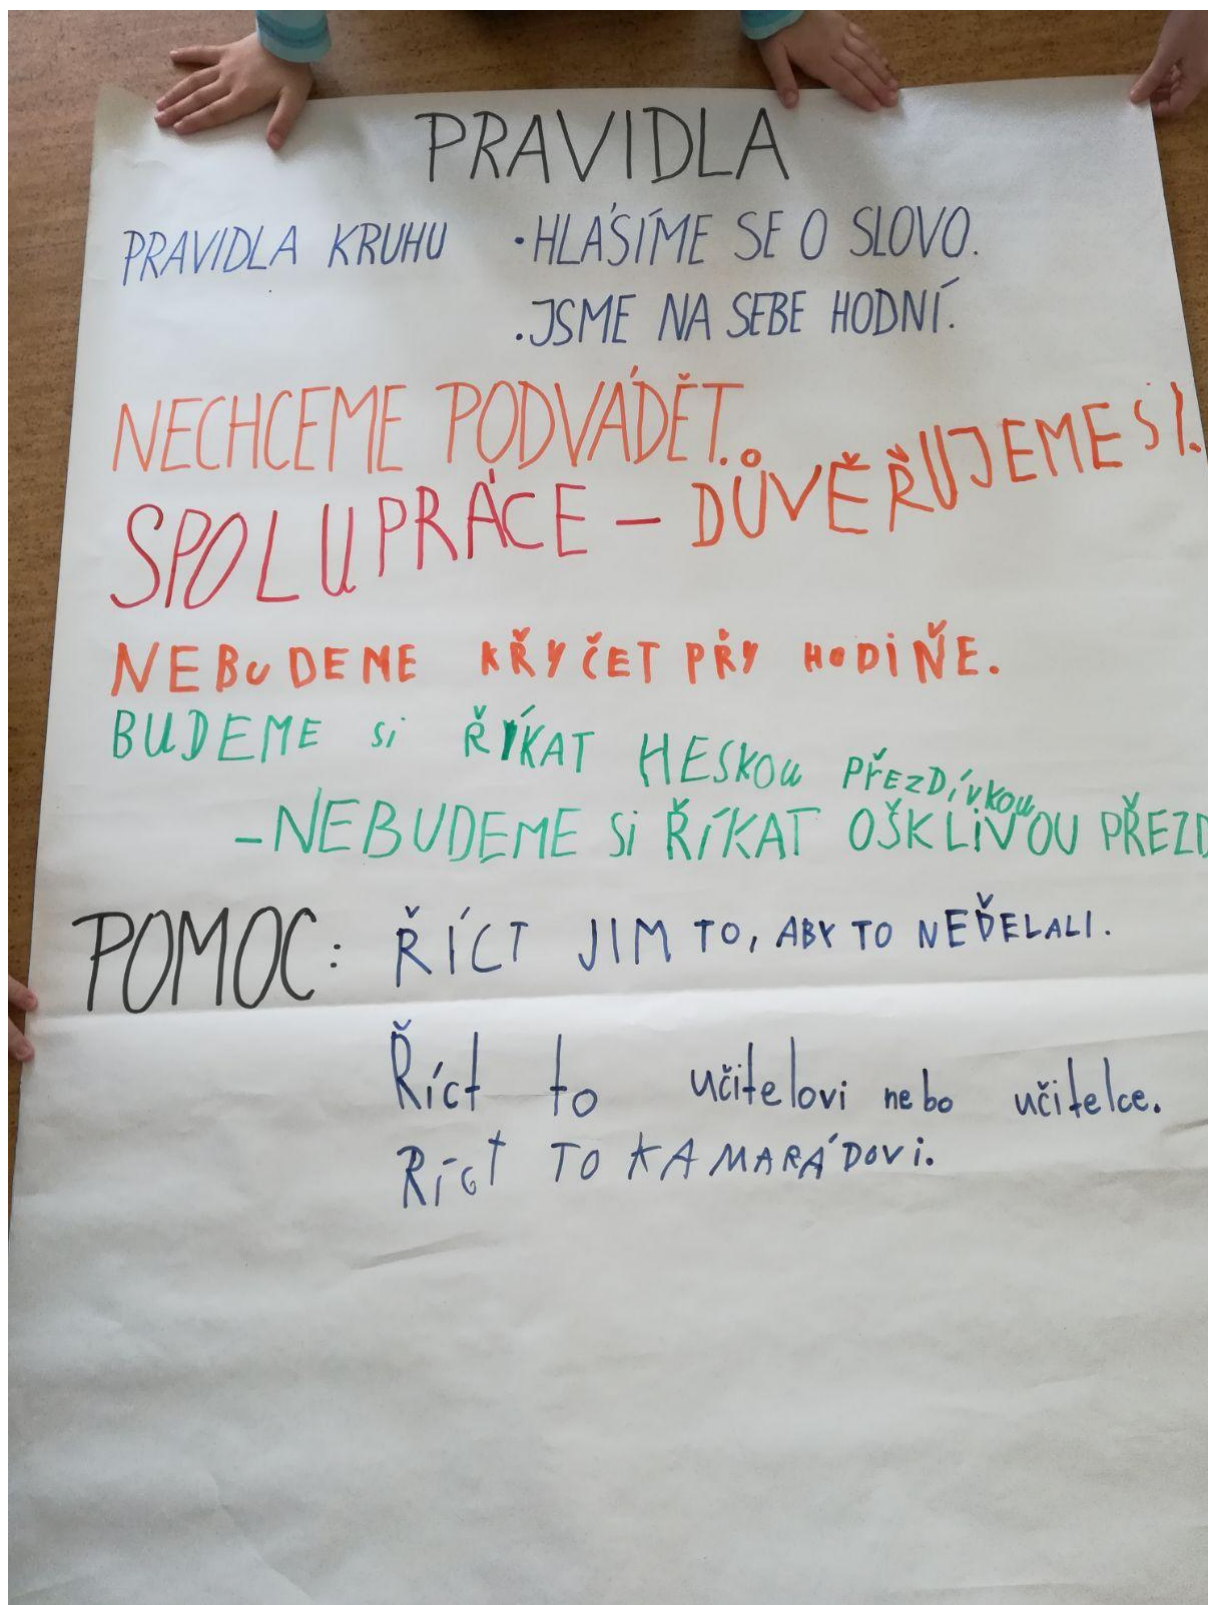 PRAVIDLA
PRAVIDLA KRUHU • HLÁSÍME SE O SLOVO.
• JSME NA SEBE HODNÍ.
NECHCEME PODVÁDĚT.
SPOLUPRÁCE – DŮVĚŘUJEME SI.
NEBUDEME KŘYČET PŘY HODIŇE.
BUDEME Si ŘÍKAT HESKOU PŘEZDÍVKOU
- NEBUDEME Si ŘÍKAT OŠKLIVOU PŘEZD
POMOC: ŘÍCT JIM TO, ABY TO NEĎELALI.
Říct to učitelovi nebo učitelce.
Říct TO KAMARÁDOVi.